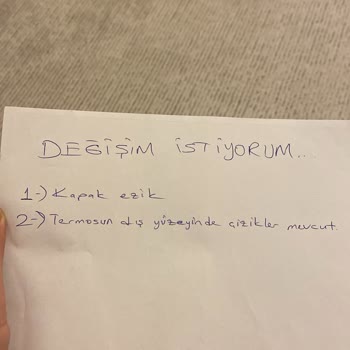 DEĞİŞİM İSTİYORUM...
1-) Kapak ezik
2-) Termosun dış yüzeyinde çizikler mevcut.